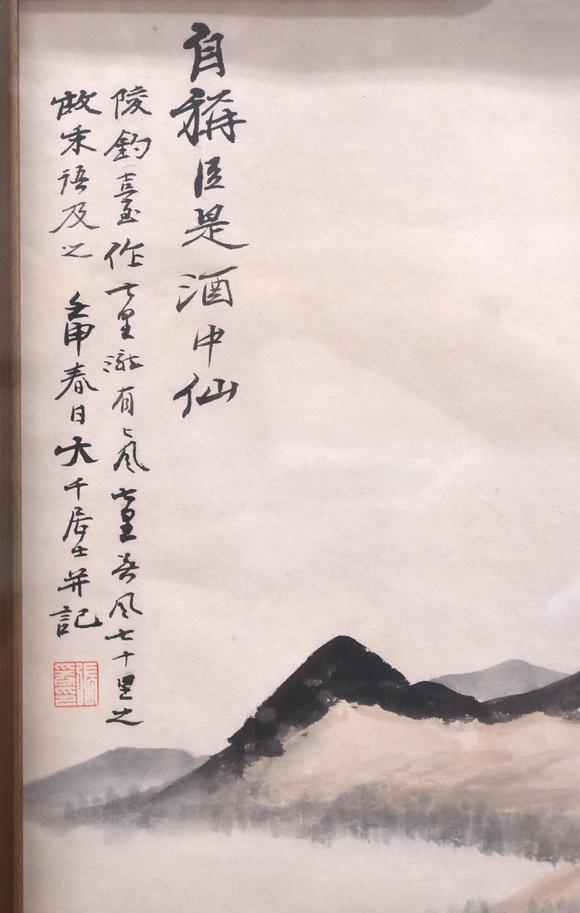 自稱臣是酒中仙
陵釣臺作七里瀧有風七里無風七十里之
故語及之 壬申春日大千居士并記